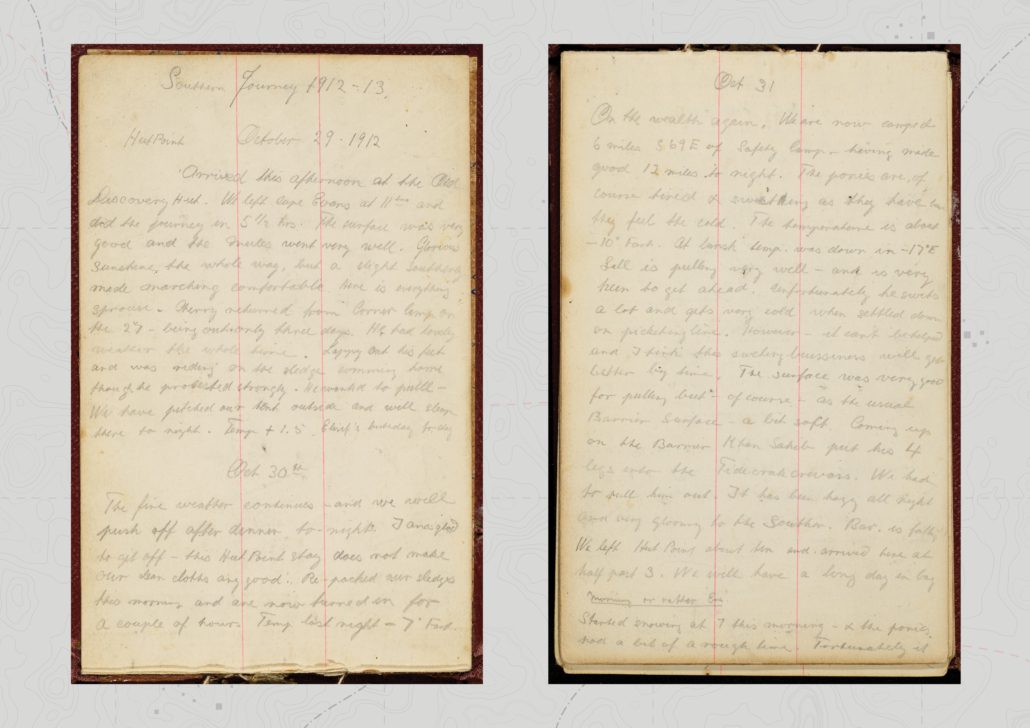 Southern Journey 1912-13.
Hut Point October 29 - 1912
Arrived this afternoon at the Old
Discovery Hut. We left Cape Evans at 11 and
did the journey in 5 1/2 hrs. The surface was very
good and the mules went very well. Glorious
sunshine, the whole way, but a slight Southerly
made marching comfortable. Here is everything
. Cherry returned from Corner Camp on
the 27 - being out only three days. He had lovely
weather the whole time. Lappy cut his feet
and was riding on the sledge coming home
though he protested strongly. He wanted to pull -
We have pitched our tent outside and will sleep
there to night. Temp + 1.5. birthday to-day
Oct 30th
The fine weather continues - and we will
push off after dinner to-night. I am glad
to git off - this Hut Point stay does not make
our clean cloths any good. Re-packed our sledges
this morning and are now turned in for
a couple of hours Temp last night - 7° Fart.
Oct 31
On the wealth again. We are now camped
6 miles S 69 E of Safety Camp - having made
good 12 miles to night. The ponies are, of
course tired & as they have
they feel the cold. The temperature is about
-10° Fart. At temp. was down in -17°
is pulling very well - and is very
keen to get ahead. Unfortunately he swets
a lot and gets very cold when settled down
on picketing line. However - it can't be helped
and I think this sweting bussiness will get
better by time. The surface was very good
for pulling but - of course - as the usual
Barrier Surface - a bit soft. Coming up
on the Barrier Khan Sahib put his 4
legs into the Tidecrack. We had
to pull him out. It has been hazy all night
and very gloomy to the Southern. Bar. is falling
We left Hut Point about ten and arrived here at
half past 3. We will have a long day in bag
Morning or rather
Started snowing at 7 this morning - & the ponies
had a bit of a rough time. Fortunately it